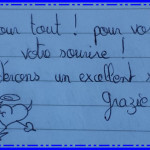 pour tout ! pour vo
votre sourire !
un excellent s
Grazie